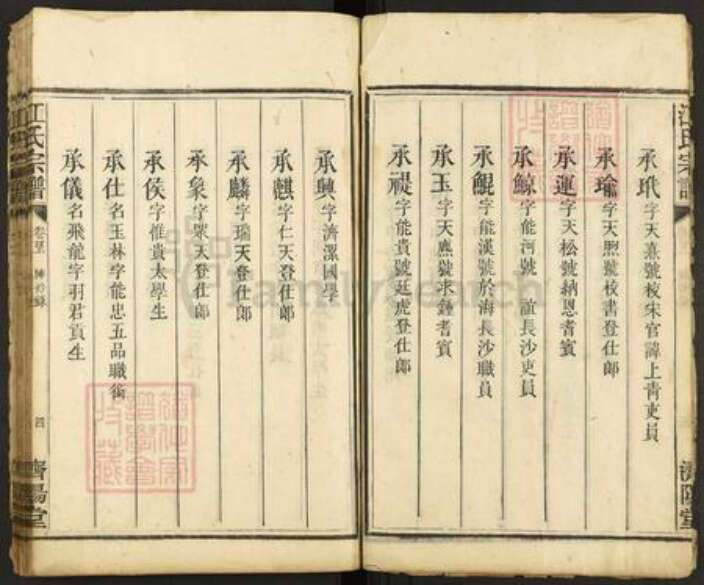 江氏宗譜
濟陽堂
承玳字天熹號校宋官諱上青吏員
承瑜字天煕號校書登仕郎
承運字天松號納恩耆賓
承鯨字能河號 誼長沙吏員
承鯤字能漢號於海長沙職員
承玉字天應號求鐘耆賓
承禔字能貴號廷虎登仕郎
承興字濟潔國學
承麒字仁天登仕郎
承麟字瑞天登仕郎
承象字眾天登仕郎
承侯字惟貴太學生
承仕名玉林字能忠五品職銜
承儀名飛龍字羽君貢生
江氏宗譜
四
濟陽堂
FamilySearch